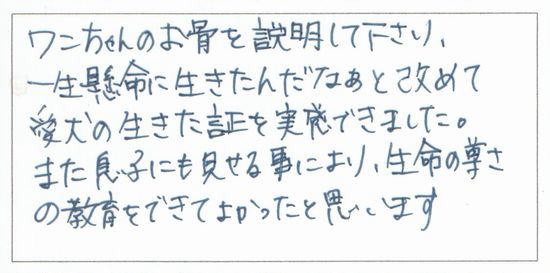 ワンちゃんのお骨を説明して下さり、
一生懸命に生きたんだなぁと改めて
愛犬の生きた証を実感できました。
また息子にも見せる事により、生命の尊さ
の教育をできてよかったと思います